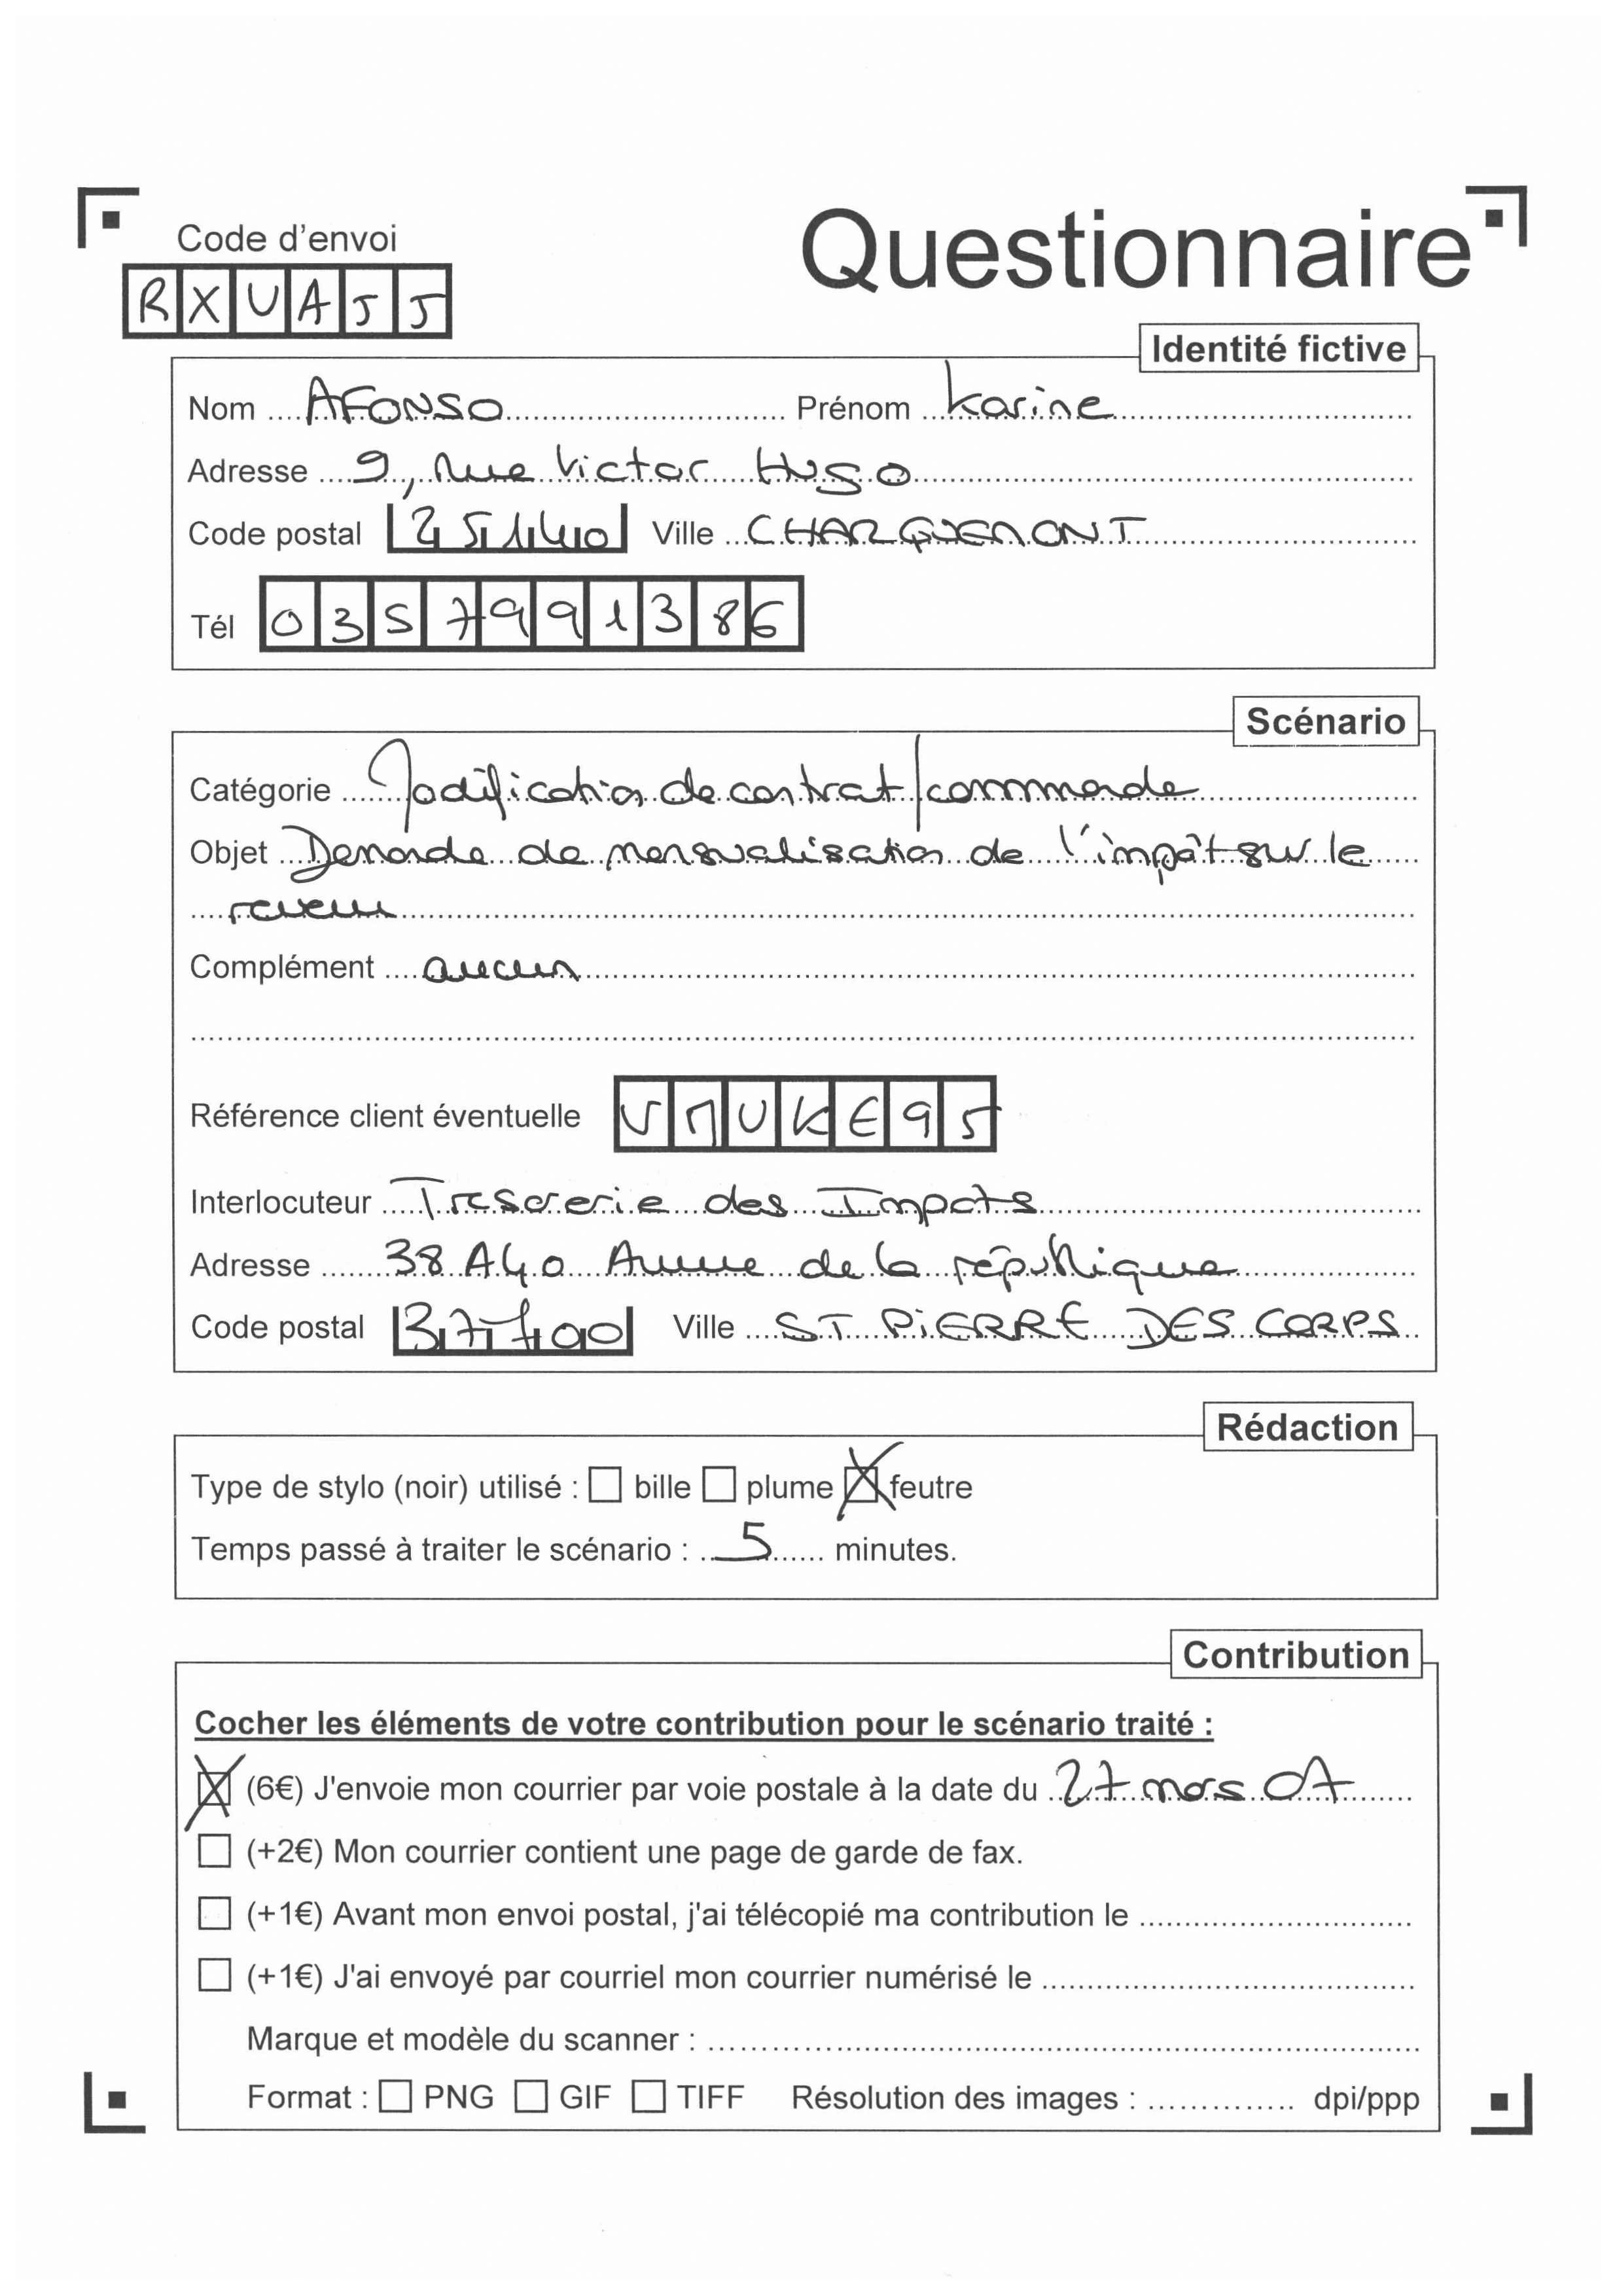 Questionnaire
Code d'envoi
RXUAJJ
Identité fictive
Nom AFONSO Prénom Karine
Adresse 9, Rue Victor Hugo
Code postal 25140 Ville CHARQUEMONT
Tél 0357991386
Scénario
Catégorie Modification de contrat/commande
Objet Demande de mensualisation de l'impôt sur le
revenu
Complément aucun
Référence client éventuelle VMUKE95
Interlocuteur Tresorerie des Impots
Adresse 38 A40 Avenue de la république
Code postal 37700 Ville ST PiERRE DES CORPS
Rédaction
Type de stylo (noir) utilisé : bille plume feutre
Temps passé à traiter le scénario : 5 minutes.
Contribution
Cocher les éléments de votre contribution pour le scénario traité :
(6€) J'envoie mon courrier par voie postale à la date du 27 mars 07
(+2€) Mon courrier contient une page de garde de fax.
(+1€) Avant mon envoi postal, j'ai télécopié ma contribution le
(+1€) J'ai envoyé par courriel mon courrier numérisé le
Marque et modèle du scanner :
Format : PNG GIF TIFF Résolution des images : dpi/ppp